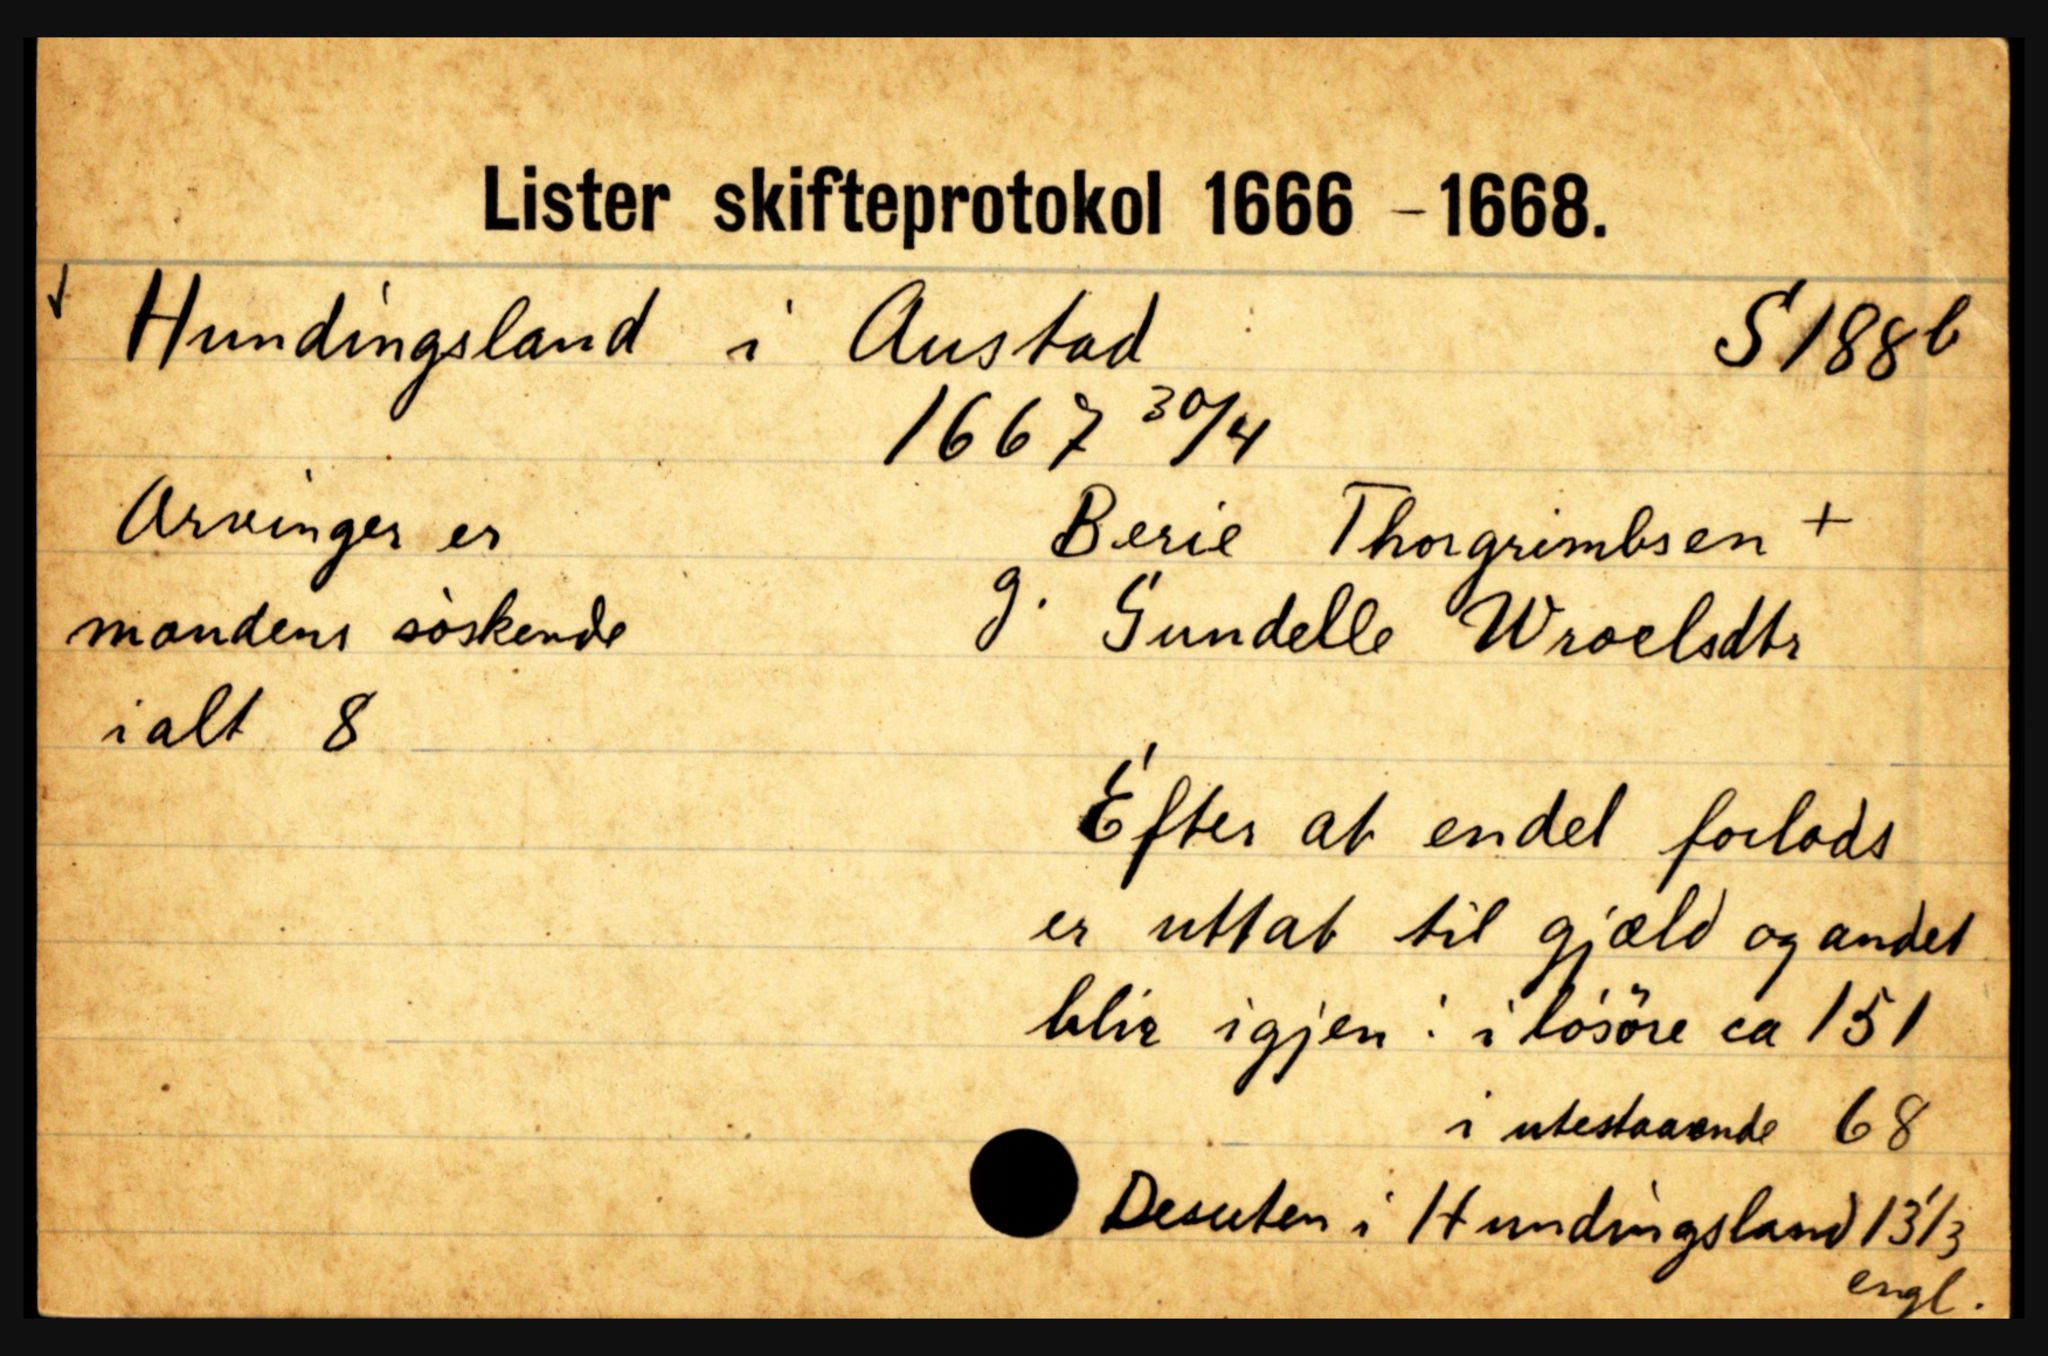 Lister skifteprotokol 1666 - 1668.
Hundingsland i Austad S 188 b
1667 30/4
Arvinger er
mandens søskende
ialt 8
Berie Thorgrimbsen +
g. Gundelle Wroelsdtr
Efter at endel forlods
er uttat til gjæld og andet
blir igjen : i løsöre ca 151
i utestaaende 68
Desuten i Hundingsland 13 1/3
engl.